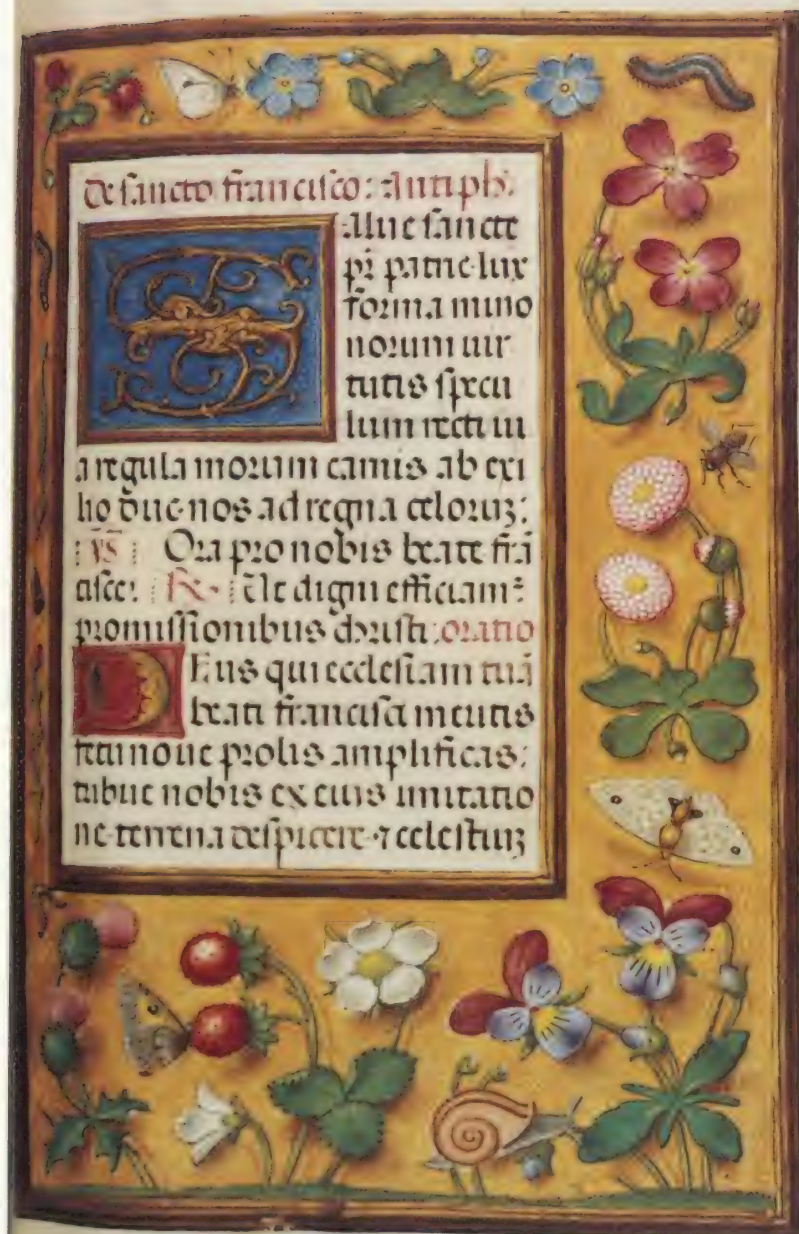 De sancto francisco: antiph̄.
Salue sancte
pr̄ patrie lux
forma mino
norum uir
tutis specu
lum recti ui
a regula morum carnis ab exi
lio duc nos ad regna celoruꝫ:
v̄s Ora pro nobis beate frā
cisce: R̄ Ut digni efficiam̄
promissionibus christi: oratio
Deus qui ecclesiam tuā
beati francisci meritis
fetu noue prolis amplificas:
tribue nobis ex eius imitatio
ne terrena despicere ⁊ celestiuꝫ